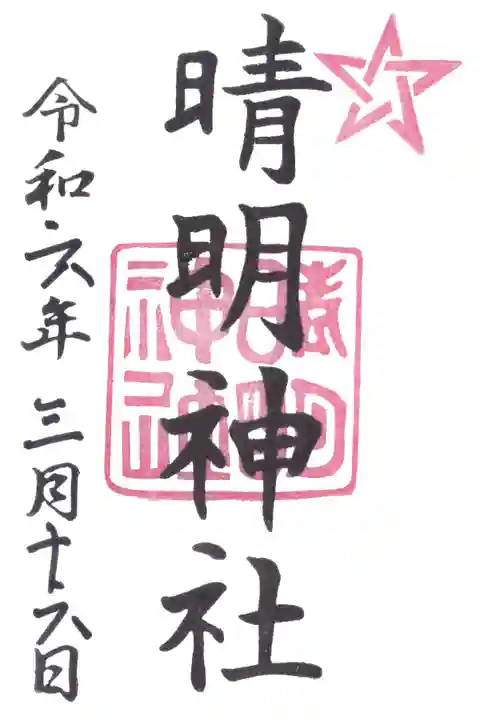 晴明神社
晴明
神社
令和六年 三月十六日